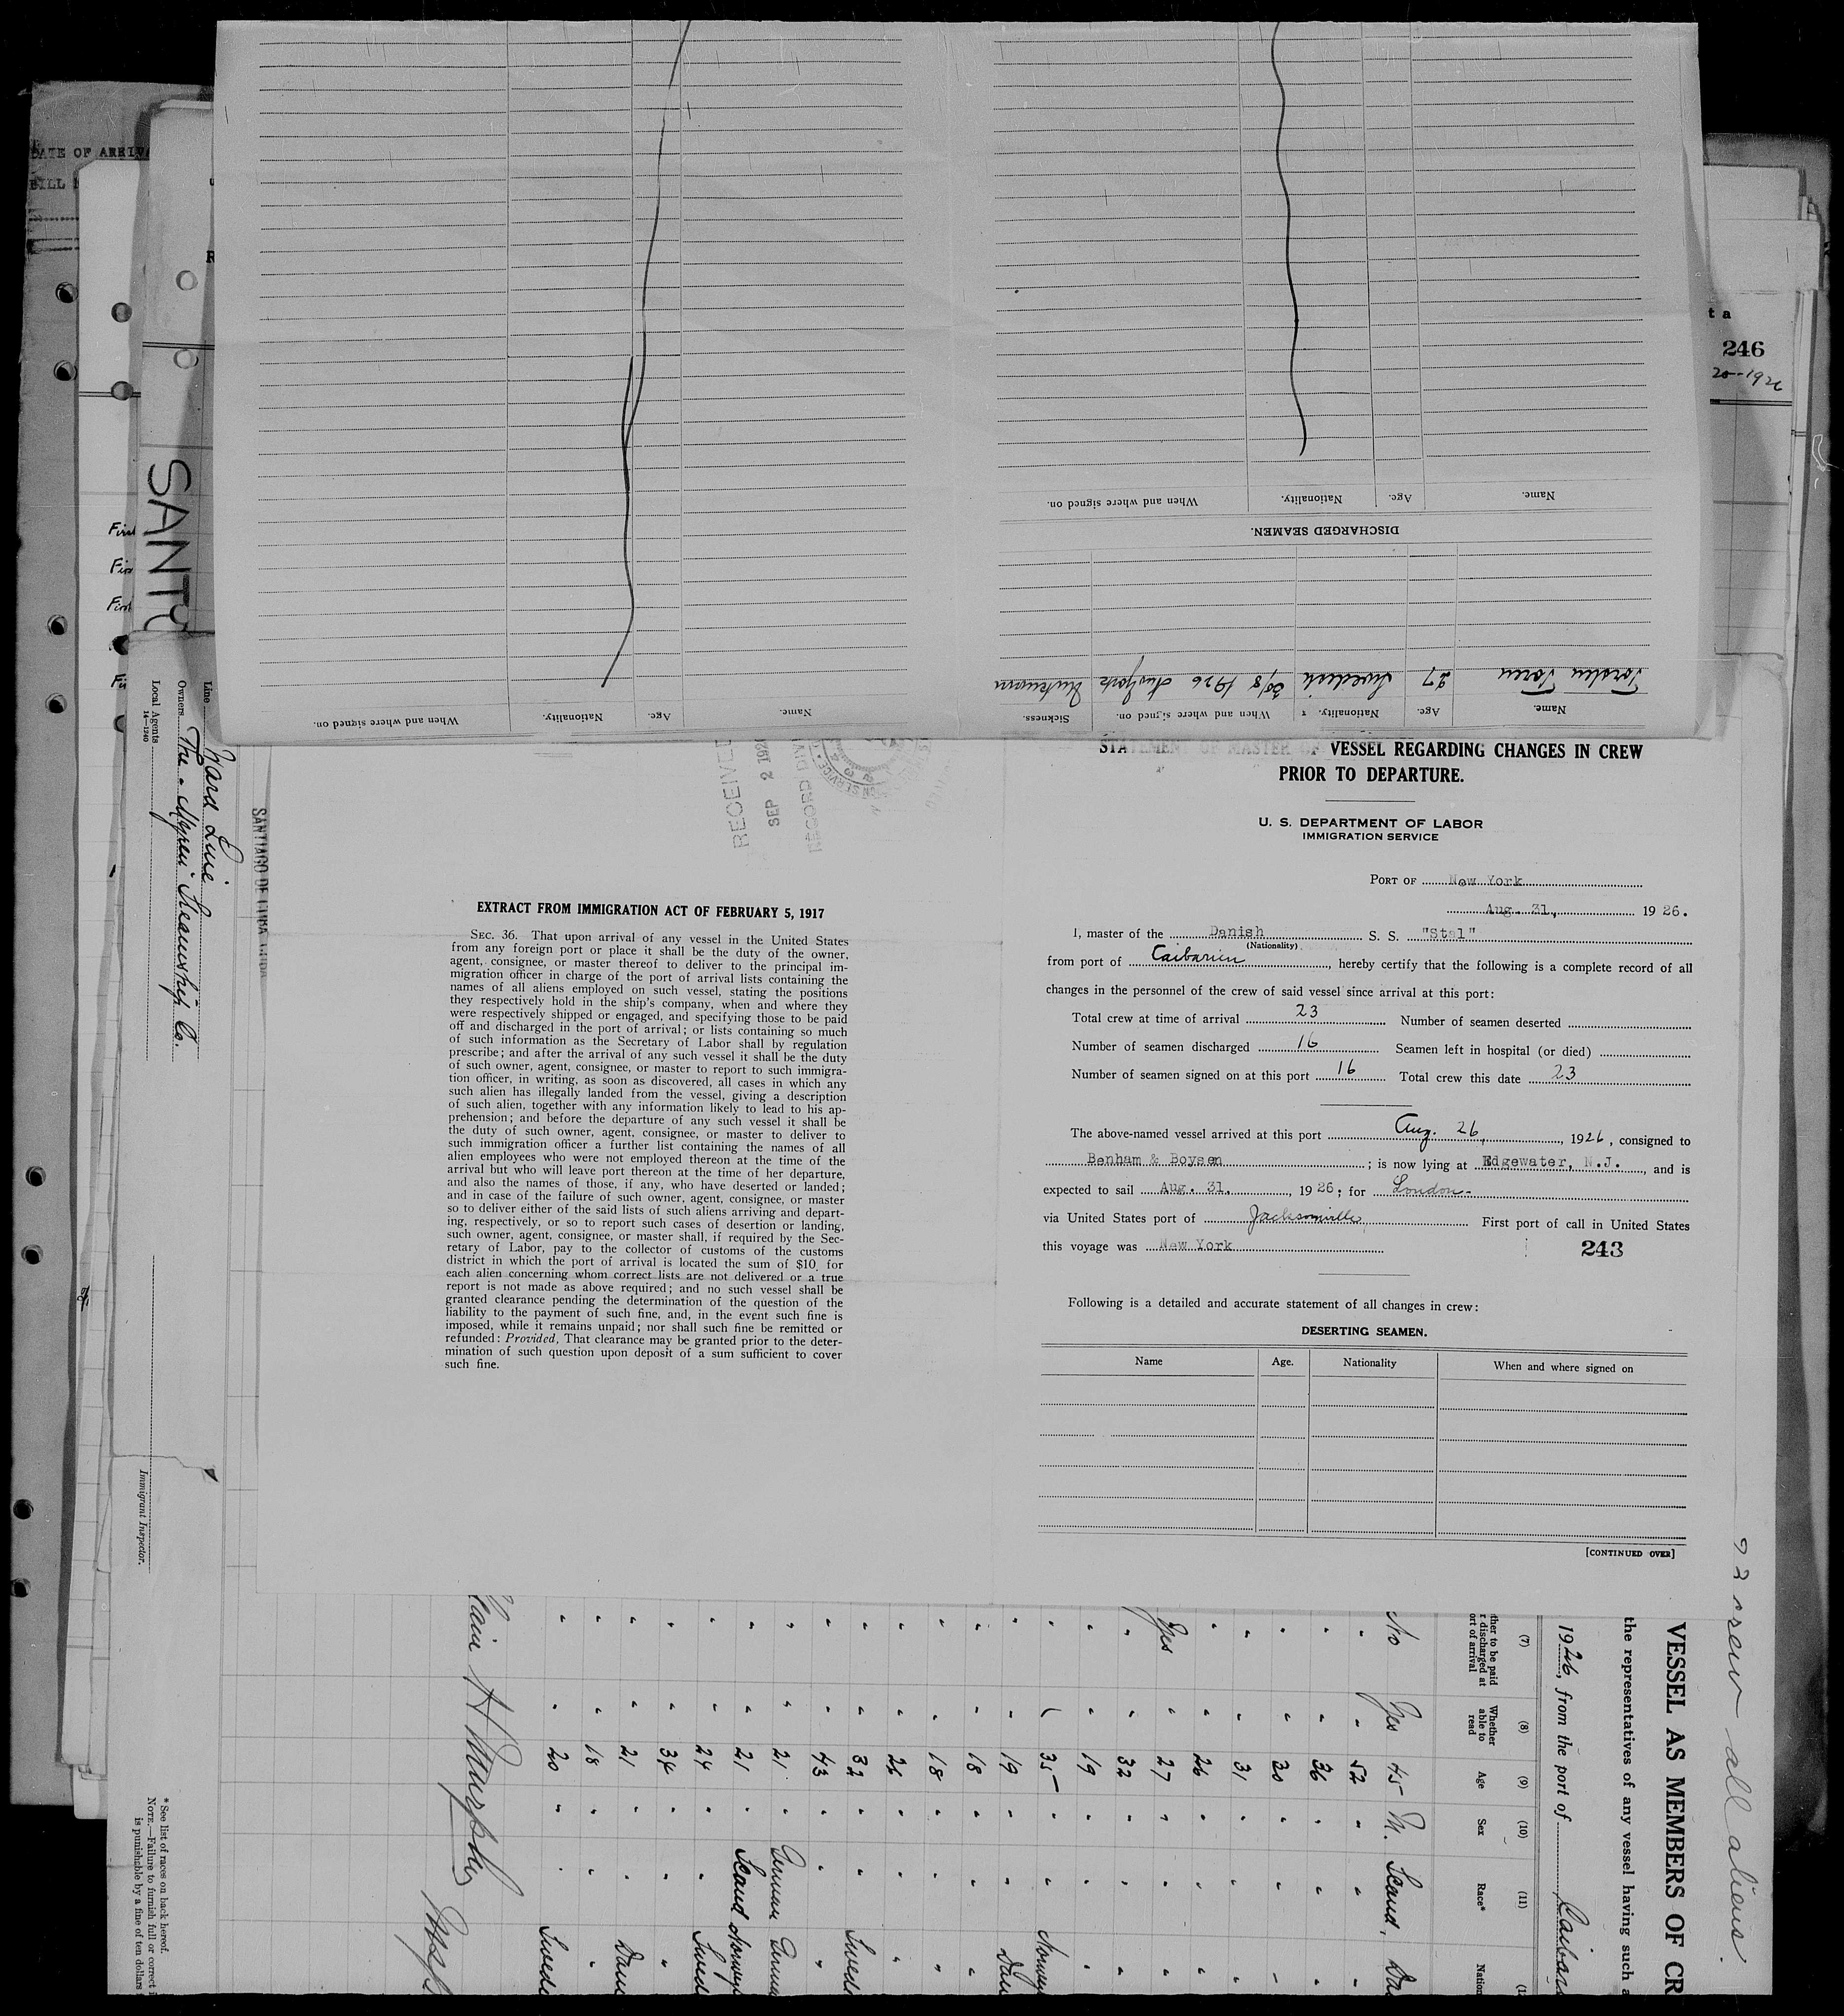 DATE OF ARRIV
BILL
ta
246
20-1926
Name.
Age.
Nationality.
When and where signed on.
Name.
Age.
Nationality.
When and where signed on.
Sickness.
Torsten Toren 27 Swedish 30/8 1926 New York
DISCHARGED SEAMEN.
Name.
Age.
Nationality.
When and where signed on.
SANT
Line Ward Line
Owners The Steamship Co.
Local Agents
14-1240
Immigrant Inspector.
SANTIAGO DE CUBA, CUBA
RECEIVED
SEP 2 1926
RECORD DIV
STATEMENT OF MASTER OF VESSEL REGARDING CHANGES IN CREW
PRIOR TO DEPARTURE.
U. S. DEPARTMENT OF LABOR
IMMIGRATION SERVICE
PORT OF New York
Aug. 31, 1926.
I, master of the Danish S. S. "Stal"
(Nationality)
from port of Caibarien, hereby certify that the following is a complete record of all
changes in the personnel of the crew of said vessel since arrival at this port:
Total crew at time of arrival 23 Number of seamen deserted
Number of seamen discharged 16 Seamen left in hospital (or died)
Number of seamen signed on at this port 16 Total crew this date 23
The above-named vessel arrived at this port Aug. 26, 1926, consigned to
Benham & Boysen; is now lying at Edgewater, N.J., and is
expected to sail Aug. 31, 1926; for London
via United States port of Jacksonville, First port of call in United States
this voyage was New York
243
Following is a detailed and accurate statement of all changes in crew:
DESERTING SEAMEN.
Name Age. Nationality When and where signed on
[CONTINUED OVER]
EXTRACT FROM IMMIGRATION ACT OF FEBRUARY 5, 1917
SEC. 36. That upon arrival of any vessel in the United States
from any foreign port or place it shall be the duty of the owner,
agent, consignee, or master thereof to deliver to the principal im-
migration officer in charge of the port of arrival lists containing the
names of all aliens employed on such vessel, stating the positions
they respectively hold in the ship's company, when and where they
were respectively shipped or engaged, and specifying those to be paid
off and discharged in the port of arrival; or lists containing so much
of such information as the Secretary of Labor shall by regulation
prescribe; and after the arrival of any such vessel it shall be the duty
of such owner, agent, consignee, or master to report to such immigra-
tion officer, in writing, as soon as discovered, all cases in which any
such alien has illegally landed from the vessel, giving a description
of such alien, together with any information likely to lead to his ap-
prehension; and before the departure of any such vessel it shall be
the duty of such owner, agent, consignee, or master to deliver to
such immigration officer a further list containing the names of all
alien employees who were not employed thereon at the time of the
arrival but who will leave port thereon at the time of her departure,
and also the names of those, if any, who have deserted or landed;
and in case of the failure of such owner, agent, consignee, or master
so to deliver either of the said lists of such aliens arriving and depart-
ing, respectively, or so to report such cases of desertion or landing,
such owner, agent, consignee, or master shall, if required by the Sec-
retary of Labor, pay to the collector of customs of the customs
district in which the port of arrival is located the sum of $10 for
each alien concerning whom correct lists are not delivered or a true
report is not made as above required; and no such vessel shall be
granted clearance pending the determination of the question of the
liability to the payment of such fine, and, in the event such fine is
imposed, while it remains unpaid; nor shall such fine be remitted or
refunded: Provided, That clearance may be granted prior to the deter-
mination of such question upon deposit of a sum sufficient to cover
such fine.
VESSEL AS MEMBERS OF CR
the representatives of any vessel having such a
1926, from the port of Caibari
23 crew all aliens.
(7) (8) (9) (10) (11)
ther to be paid
r discharged at
ort of arrival
Whether able to read
Age
Sex
Race*
Nation
No Yes 45 M. Scand. Da
52
36
30
31
26
Yes 27
32
19
35 Norweg
19 Dan
18
18
26
32 Swed
43
21 German German
21 Scand Norweg
24 Swed
34
21 Dan
18
20 Swed
H Murphy
* See list of races on back hereof.
NOTE.—Failure to furnish full or correct i
is punishable by a fine of ten dollars